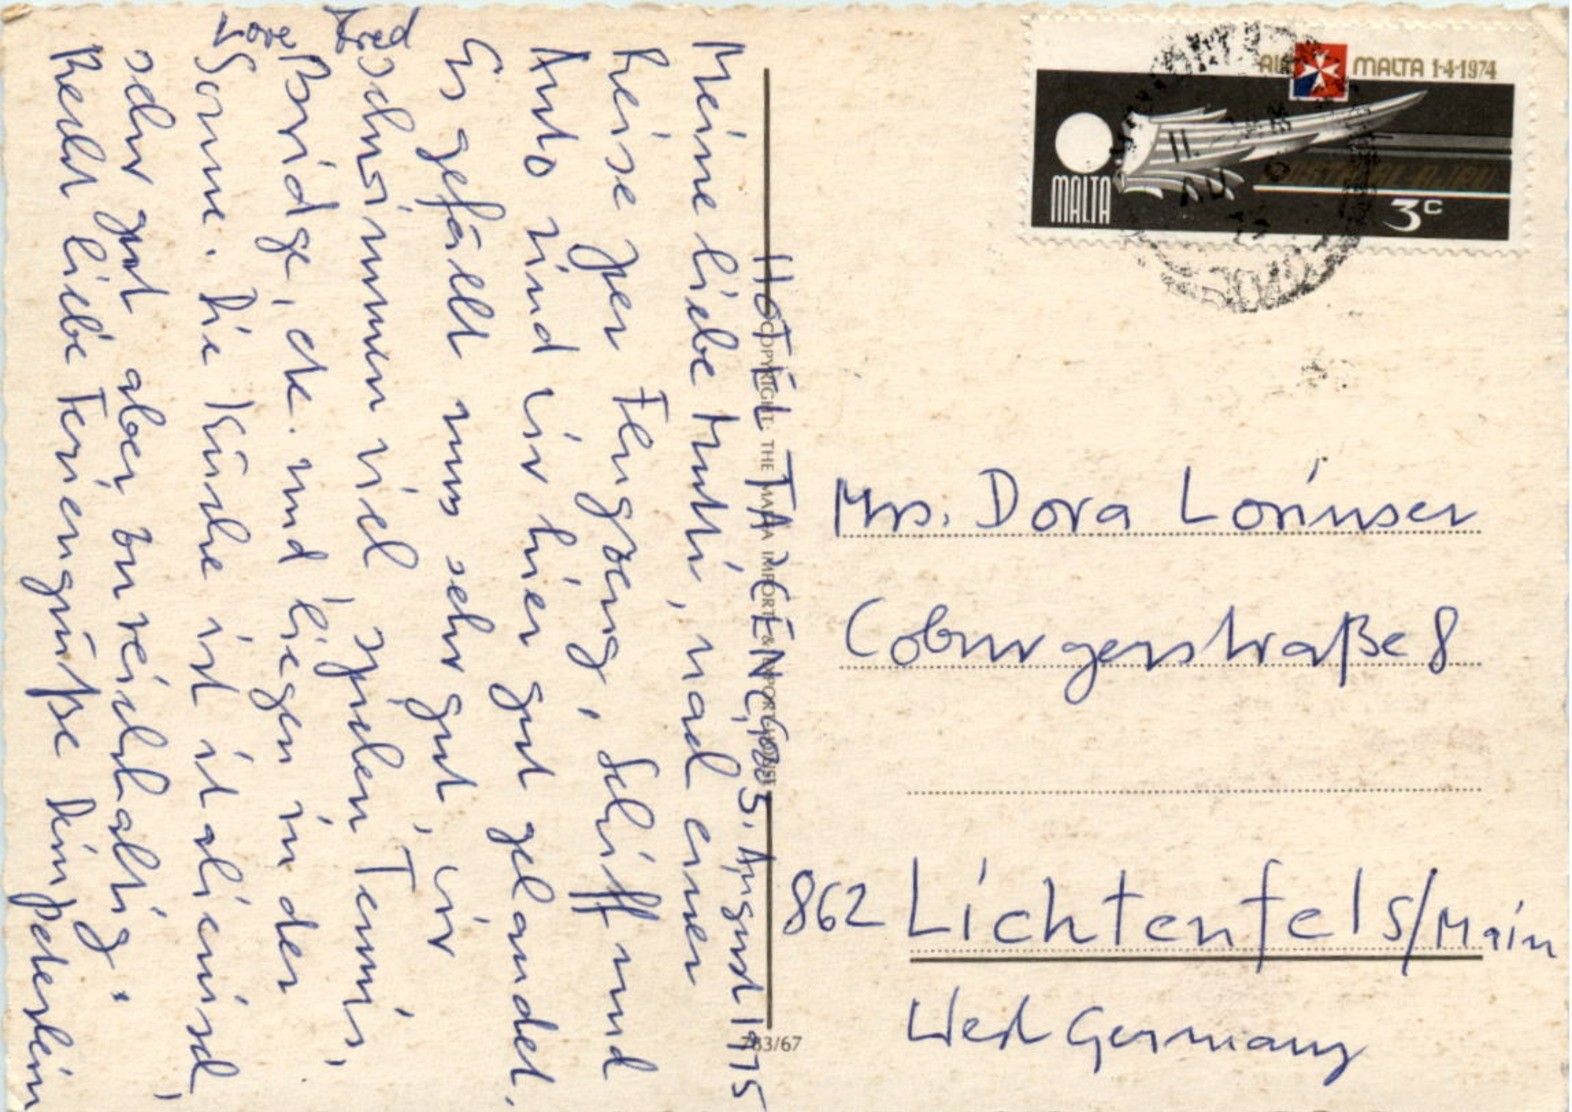 HOTEL TA'CENC, GOZO 3. August 1975
Meine liebe Mutti, nach einer
Reise per Flugzeug, Schiff und
Auto sind wir hier gut gelandet.
Es gefällt uns sehr gut, wir
schwimmen viel, spielen Tennis,
Bridge, etc. und liegen in der
Sonne. Die Küche ist italienisch,
sehr gut aber zu reichhaltig.
Recht liebe Feriengrüße Dein Peterlein
Lore
COPYRIGHT: THE
IMPORT &
783/67
AIR MALTA 1·4·1974
MALTA
3c
Mrs. Dora Lorinser
Coburgerstraße 8
862 Lichtenfels/Main
West Germany